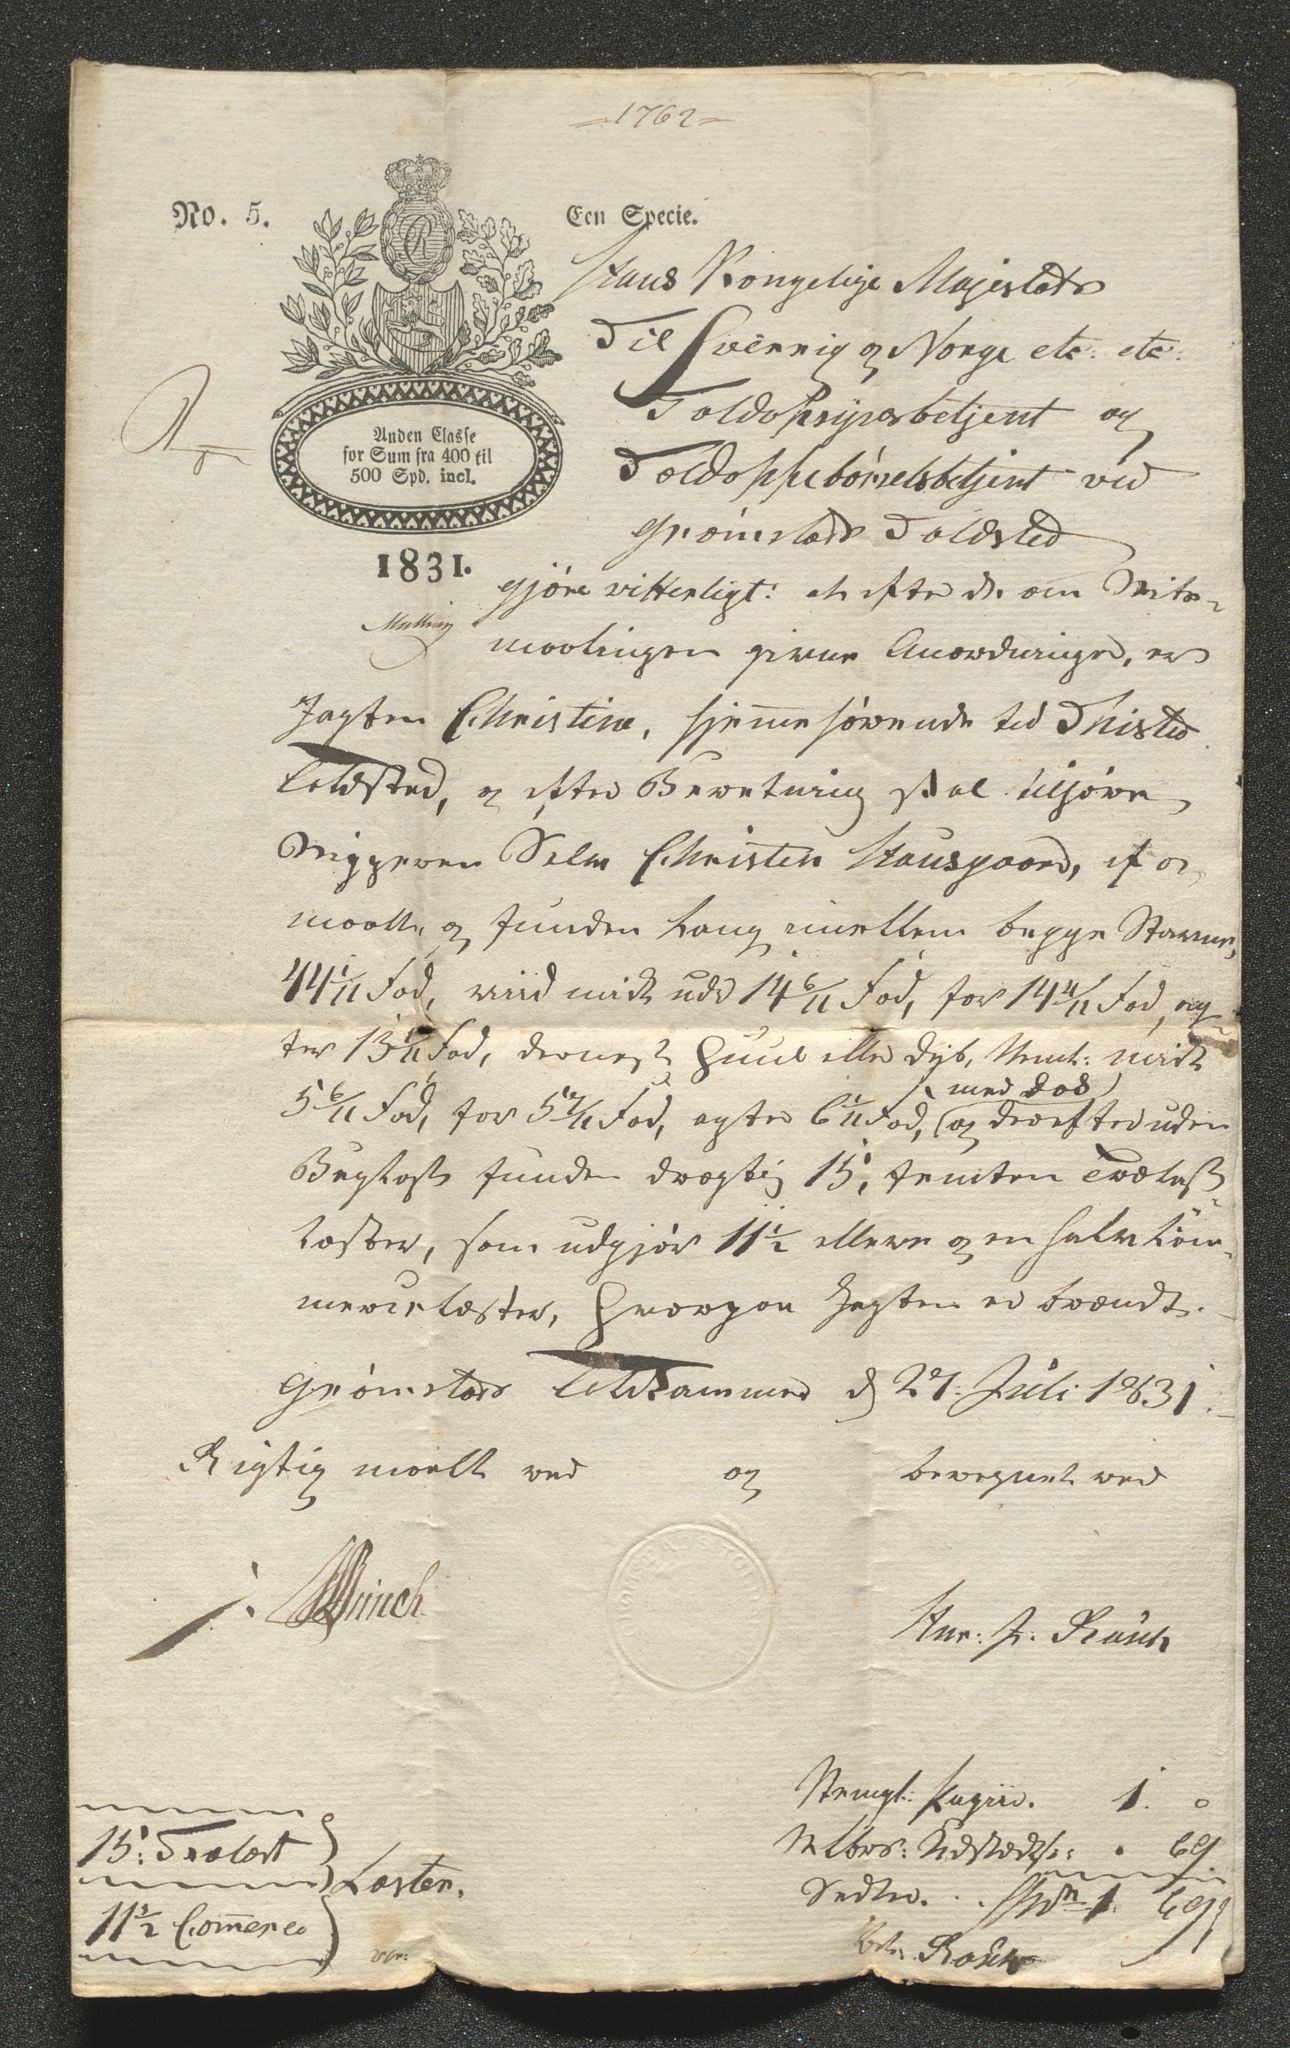 1762
No. 5.
Een Specie.
CR
Anden Classe
for Sum fra 400 til
500 Spd. incl.
1831.
Hans Kongelige Majestæts
Til Sverrig og Norge etc: etc:
Toldopsynsbetjent og
Toldoppebørselsbetjent ved
Grømstads Toldsted
gjøre vitterligt: at efter de om Skibs-
maalingen givne Anordninger, er
Jagten Christine, hjemmehørende ved Thisted
Toldsted, og efter Beretning skal tilhøre
Skipperen Selv Christen Hausgaard, af os
maalt og funden lang imellem begge Stavne,
44 1/11 Fod, viid midt uds 14 6/11 Fod, for 14 4/11 Fod, ag-
ter 13 1/11 Fod, dernest Huul eller dyb, Nemt: midt
5 6/11 Fod, for 5 7/11 Fod, agter 6 1/11 Fod, og derefter uden
Baglast funden drægtig 15, femten Trælast
læster, som udgjør 11 1/2 elleve og en halv Com-
mercelæster, hvorpaa Jagten er brændt.
Grømstads Toldkammer d 27. Juli 1831.
Rigtig maalt ved og beregnet ved
Münch
Rasch
Stempl: Papiir. 1. 0
69
Sedler. 1. 69
Rasch
15: Trælast
Læster.
11 1/2 Commerce